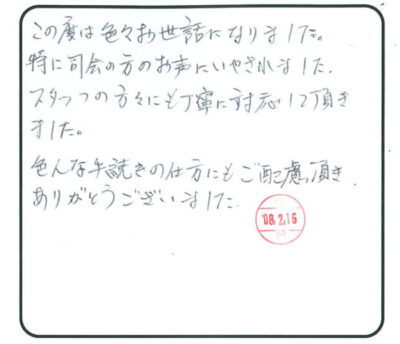 この度は色々お世話になりました。
特に司会の方のお声にいやされました。
スタッフの方々にも丁寧に対応して頂き
ました。
色んな手続きの仕方にもご配慮頂き
ありがとうございました。
'08.2.16